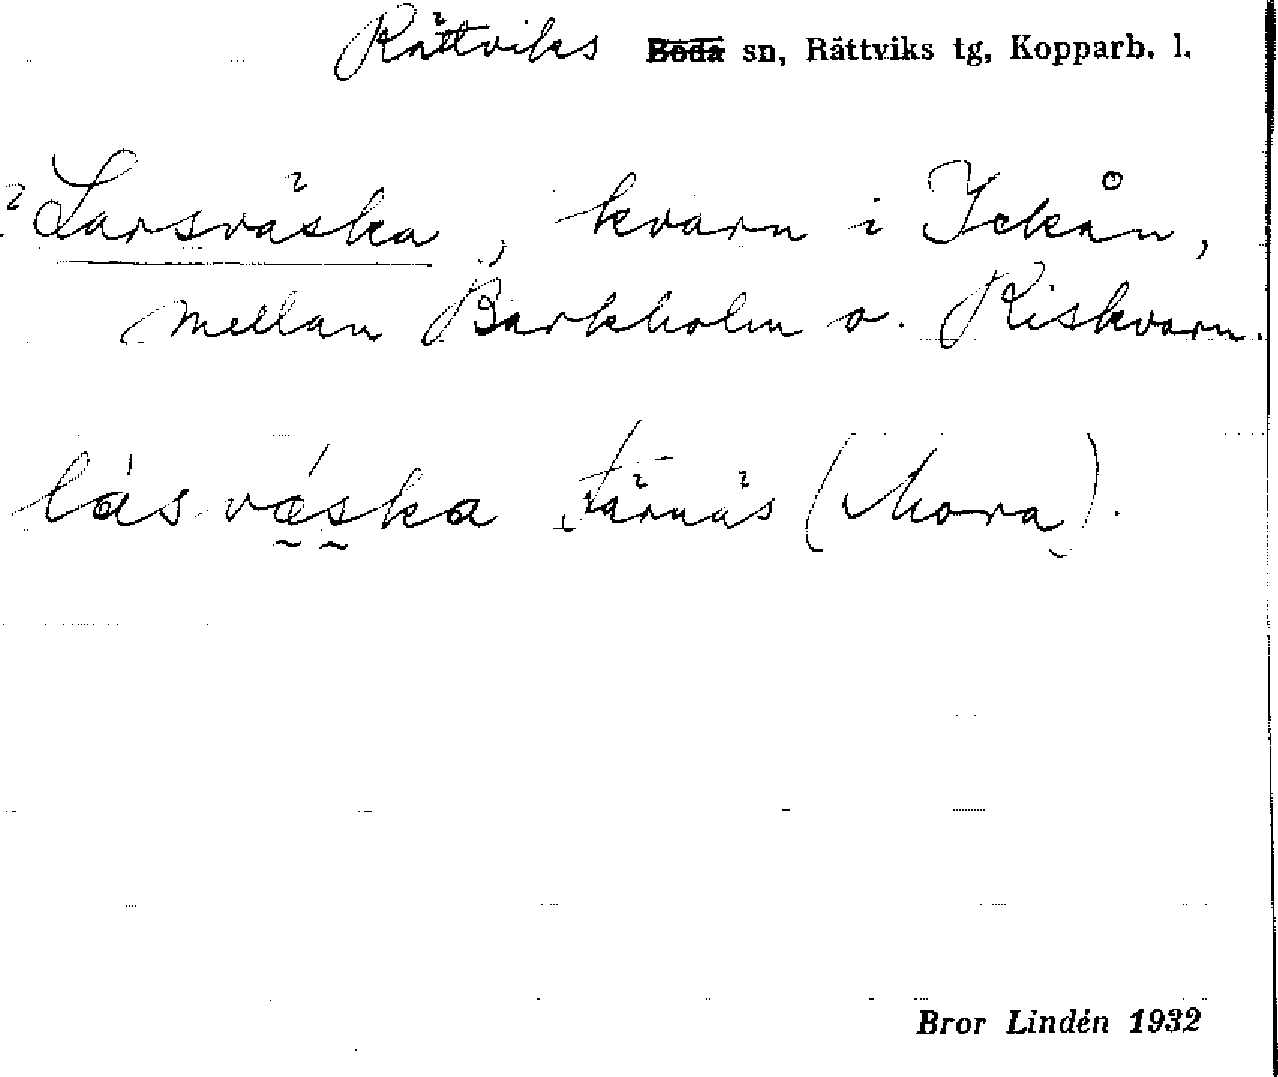 Rättviks ~~Boda~~ sn, Rättviks tg, Kopparb. l.
? Larsväska, kvarn i Ickån,
mellan Barkholm o. Riskvarn.
lásvǻska Färnäs (Mora).
Bror Lindén 1932